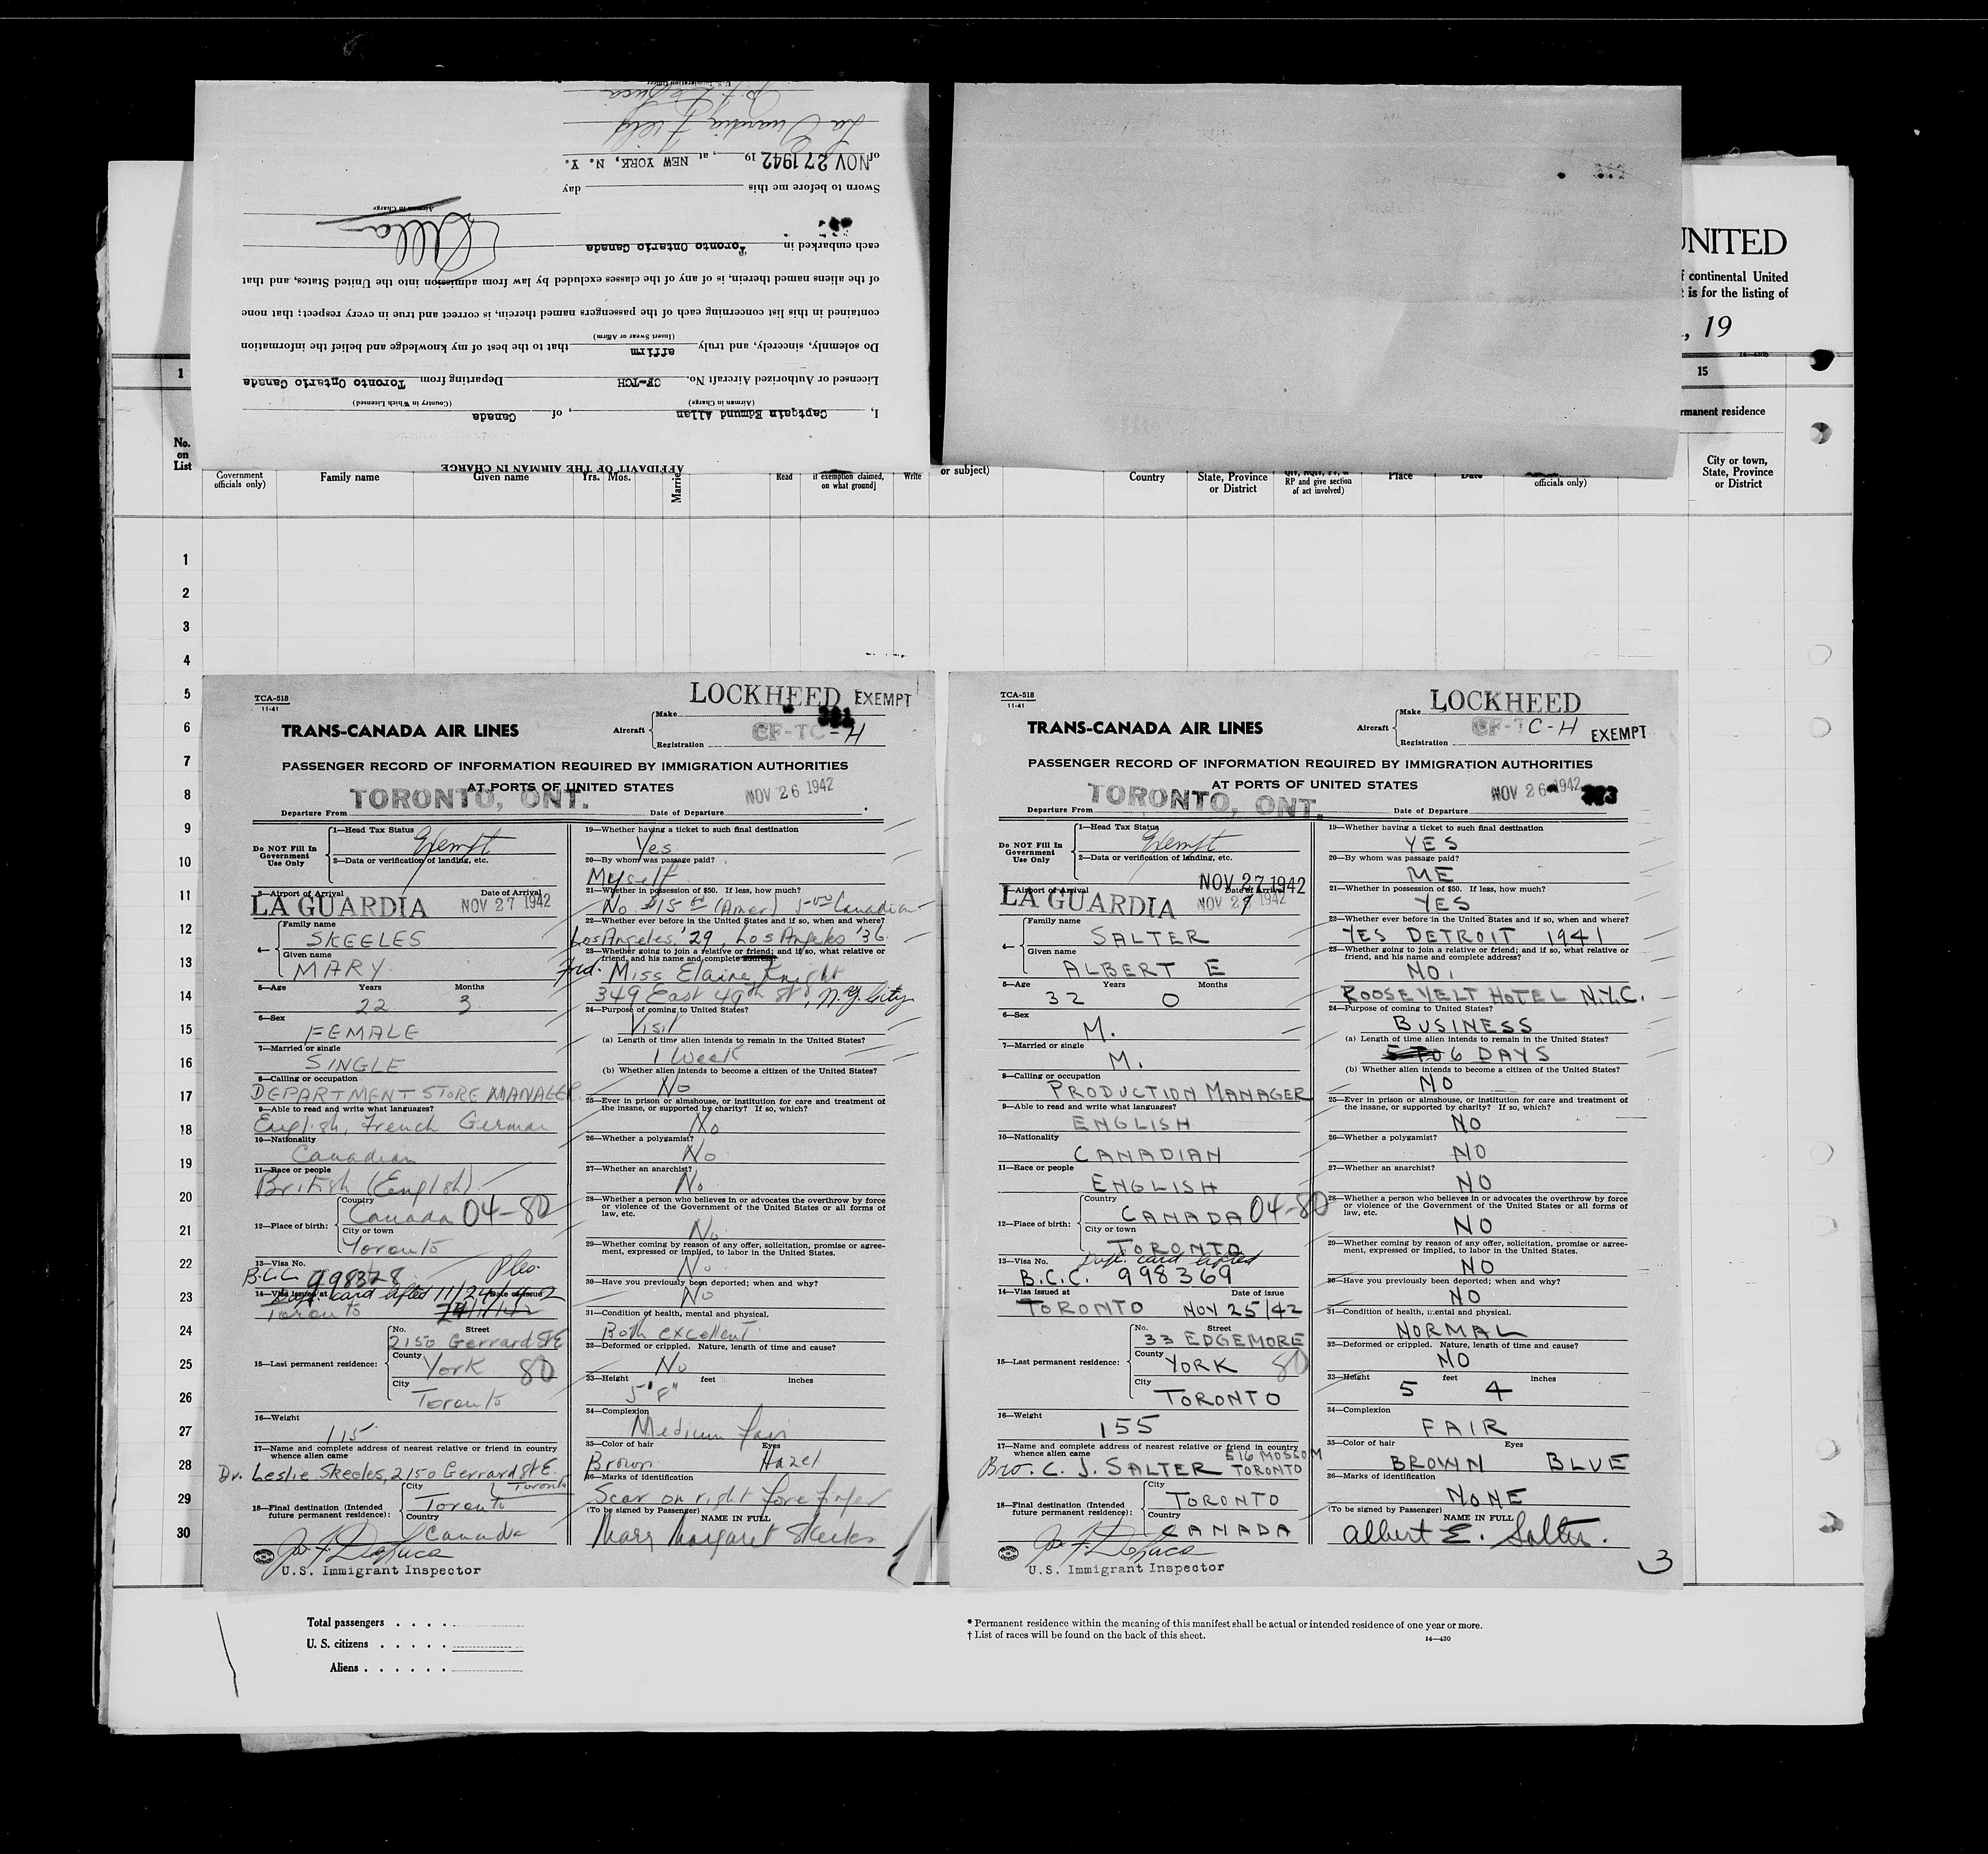 AFFIDAVIT OF THE AIRMAN IN CHARGE
I, Captqain Edmund Allan , of Canada
(Airman in Charge) (Country in Which Licensed)
Licensed or Authorized Aircraft No. CF-TCH Departing from Toronto Ontario Canada
Do solemnly, sincerely, and truly affirm that to the best of my knowledge and belief the information
(Insert Swear or Affirm)
contained in this list concerning each of the passengers named therein, is correct and true in every respect; that none
of the aliens named therein, is of any of the classes excluded by law from admission into the United States, and that
each embarked in Toronto Ontario Canada
Airman in Charge
Sworn to before me this day
of NOV 27 1942 19 , at NEW YORK, N. Y.
La Guardia Field
U.S. Immigration Officer
UNITED
f continental United
t is for the listing of
, 19
1
15
rmanent residence
No.
on
List
Government
officials only)
Family name
Given name
Yrs. Mos.
Married
Read
if exemption claimed,
on what ground]
Write
or subject)
Country
State, Province
or District
RP and give section
of act involved)
Place
Date
officials only)
City or town,
State, Province
or District
1
2
3
4
5
6
7
8
9
10
11
12
13
14
15
16
17
18
19
20
21
22
23
24
25
26
27
28
29
30
TCA-518
11-41
LOCKHEED EXEMPT
TRANS-CANADA AIR LINES
Aircraft
Make
Registration CF-TC-H
PASSENGER RECORD OF INFORMATION REQUIRED BY IMMIGRATION AUTHORITIES
AT PORTS OF UNITED STATES
Departure From TORONTO, ONT. Date of Departure NOV 26 1942
Do NOT Fill In
Government
Use Only
1—Head Tax Status Exempt
2—Data or verification of landing, etc.
3—Airport of Arrival Date of Arrival
LA GUARDIA NOV 27 1942
4—
Family name
SKEELES
Given name
MARY
5—Age Years Months
22 3
6—Sex
FEMALE
7—Married or single
SINGLE
8—Calling or occupation
DEPARTMENT STORE MANAGER
9—Able to read and write what languages?
English, French German
10—Nationality
Canadian
11—Race or people
British (English)
12—Place of birth:
Country
Canada 04-80
City or town
Toronto
13—Visa No.
B.C.C. 998328
14—Visa issued at Date of issue
Dept. card lifted 11/24/1942
Toronto
15—Last permanent residence:
No. Street
2150 Gerrard St E
County
York 80
City
Toronto
16—Weight
115
17—Name and complete address of nearest relative or friend in country
whence alien came
Dr. Leslie Skeeles, 2150 Gerrard St E.
Toronto
18—Final destination (Intended
future permanent residence):
City
Toronto
Country
Canada
Jos F. DeLuca
U.S. Immigrant Inspector
19—Whether having a ticket to such final destination
Yes
20—By whom was passage paid?
Myself
21—Whether in possession of $50. If less, how much?
No $15 00 (Amer) 5 00 Canadian
22—Whether ever before in the United States and if so, when and where?
Los Angeles '29, Los Angeles '36
23—Whether going to join a relative or friend; and if so, what relative or
friend, and his name and complete address?
Frd. Miss Elaine Knight
349 East 49th St, N.Y. City
24—Purpose of coming to United States?
Visit
(a) Length of time alien intends to remain in the United States?
1 Week
(b) Whether alien intends to become a citizen of the United States?
No
25—Ever in prison or almshouse, or institution for care and treatment of
the insane, or supported by charity? If so, which?
No
26—Whether a polygamist?
No
27—Whether an anarchist?
No
28—Whether a person who believes in or advocates the overthrow by force
or violence of the Government of the United States or all forms of
law, etc.
No
29—Whether coming by reason of any offer, solicitation, promise or agree-
ment, expressed or implied, to labor in the United States.
No
30—Have you previously been deported; when and why?
No
31—Condition of health, mental and physical.
Both excellent
32—Deformed or crippled. Nature, length of time and cause?
No
33—Height feet inches
5' 8"
34—Complexion
Medium fair
35—Color of hair Eyes
Brown Hazel
36—Marks of identification
Scar on right fore finger
(To be signed by Passenger) NAME IN FULL
Mary Margaret Skeeles
TCA-518
11-41
LOCKHEED
TRANS-CANADA AIR LINES
Aircraft
Make
Registration CF-TC-H EXEMPT
PASSENGER RECORD OF INFORMATION REQUIRED BY IMMIGRATION AUTHORITIES
AT PORTS OF UNITED STATES
Departure From TORONTO, ONT. Date of Departure NOV 26 1942
Do NOT Fill In
Government
Use Only
1—Head Tax Status Exempt
2—Data or verification of landing, etc.
NOV 27 1942
3—Airport of Arrival Date of Arrival
LA GUARDIA NOV 27 1942
4—
Family name
SALTER
Given name
ALBERT E
5—Age Years Months
32 0
6—Sex
M.
7—Married or single
M.
8—Calling or occupation
PRODUCTION MANAGER
9—Able to read and write what languages?
ENGLISH
10—Nationality
CANADIAN
11—Race or people
ENGLISH
12—Place of birth:
Country
CANADA 04-80
City or town
TORONTO
13—Visa No. Dept. card lifted
B.C.C. 998369
14—Visa issued at Date of issue
TORONTO NOV 25/42
15—Last permanent residence:
No. Street
33 EDGEMORE
County
YORK 80
City
TORONTO
16—Weight
155
17—Name and complete address of nearest relative or friend in country
whence alien came 516 MOSSOM
Bro. C. J. SALTER TORONTO
18—Final destination (Intended
future permanent residence):
City
TORONTO
Country
CANADA
Jos F. DeLuca
U.S. Immigrant Inspector
19—Whether having a ticket to such final destination
YES
20—By whom was passage paid?
ME
21—Whether in possession of $50. If less, how much?
YES
22—Whether ever before in the United States and if so, when and where?
YES DETROIT 1941
23—Whether going to join a relative or friend; and if so, what relative or
friend, and his name and complete address?
NO.
ROOSEVELT HOTEL N.Y.C.
24—Purpose of coming to United States?
BUSINESS
(a) Length of time alien intends to remain in the United States?
6 DAYS
(b) Whether alien intends to become a citizen of the United States?
NO
25—Ever in prison or almshouse, or institution for care and treatment of
the insane, or supported by charity? If so, which?
NO
26—Whether a polygamist?
NO
27—Whether an anarchist?
NO
28—Whether a person who believes in or advocates the overthrow by force
or violence of the Government of the United States or all forms of
law, etc.
NO
29—Whether coming by reason of any offer, solicitation, promise or agree-
ment, expressed or implied, to labor in the United States.
NO
30—Have you previously been deported; when and why?
NO
31—Condition of health, mental and physical.
NORMAL
32—Deformed or crippled. Nature, length of time and cause?
NO
33—Height feet inches
5 4
34—Complexion
FAIR
35—Color of hair Eyes
BROWN BLUE
36—Marks of identification
NONE
(To be signed by Passenger) NAME IN FULL
Albert E. Salter.
3
Total passengers
U. S. citizens
Aliens
* Permanent residence within the meaning of this manifest shall be actual or intended residence of one year or more.
† List of races will be found on the back of this sheet.
14—430